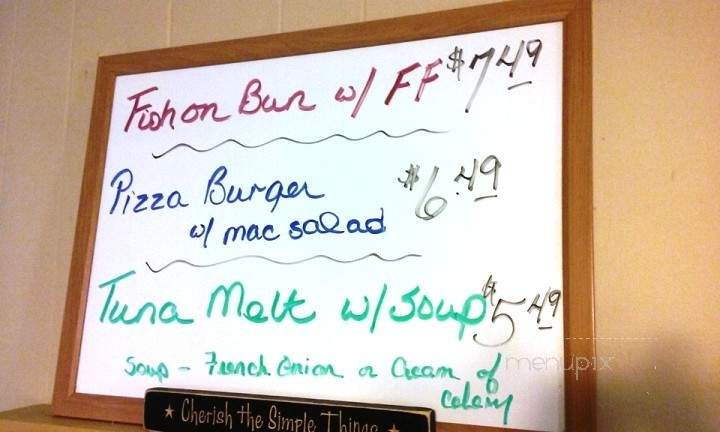 Fish on Bun w/ FF $7.49
Pizza Burger $6.49
w/ mac salad
Tuna Melt w/ Soup $5.49
Soup - French Onion or Cream of
Celery
menupix
★ Cherish the Simple Things ★